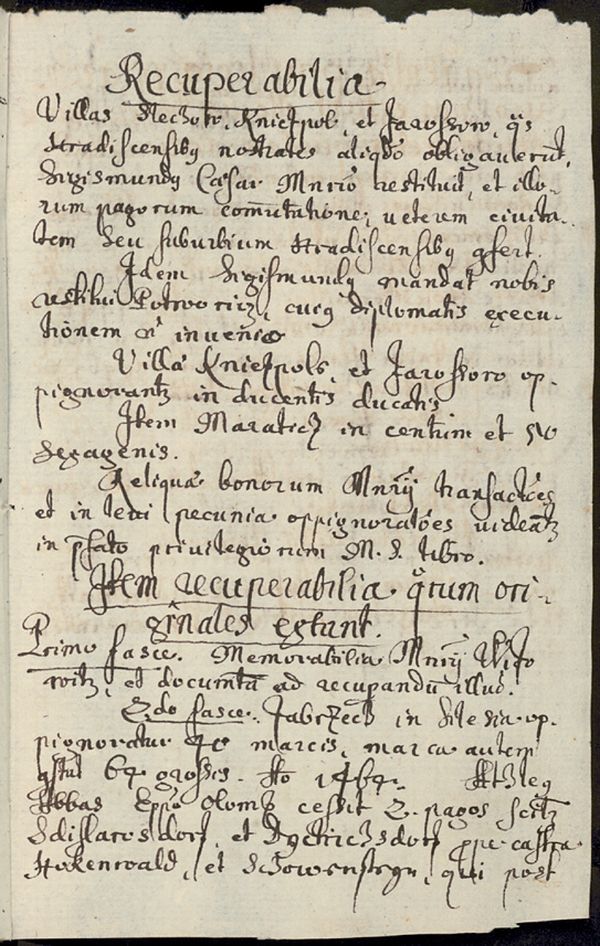 Recuperabilia.
Villas Nechow, Kniezpol, et Jarossow, qs
Hradiscensibq nostrates aliqdo obligaverut,
Sigismundq Cæsar Mnrio restituit, et illo-
rum pagorum comutatione, veterem civita-
tem seu suburbium Hradiscensibq gfert.
Idem Sigismundq mandat nobis
restitui cuiq diplomatis execu-
tionem n invenio
Villa Kniezpole, et Jarossow op-
pignorantz in ducentis ducatis
Item Maraticz in centum et 50
sexagenis.
Reliquæ bonorum Mnrij transactoes
et in levi pecunia oppignoratoes videatz
in pfato privilegiorum M. S. libro.
Item recuperabilia qrum ori-
ginales extant.
Primo fasce. Memorabilia Mnrij
et documta ad recupandu illud.
2.do fasce. Jabczecz in Silesia op-
pignoratur 40 marcis, marca autem
gstat 64 grossis. Ao 1464.
Abbas Eppo Olomz cessit 2. pagos scitz
Sdislawsdorf, et Dytrichsdorf ppe castra
Hokenwald, et Schowensteyn, qui post